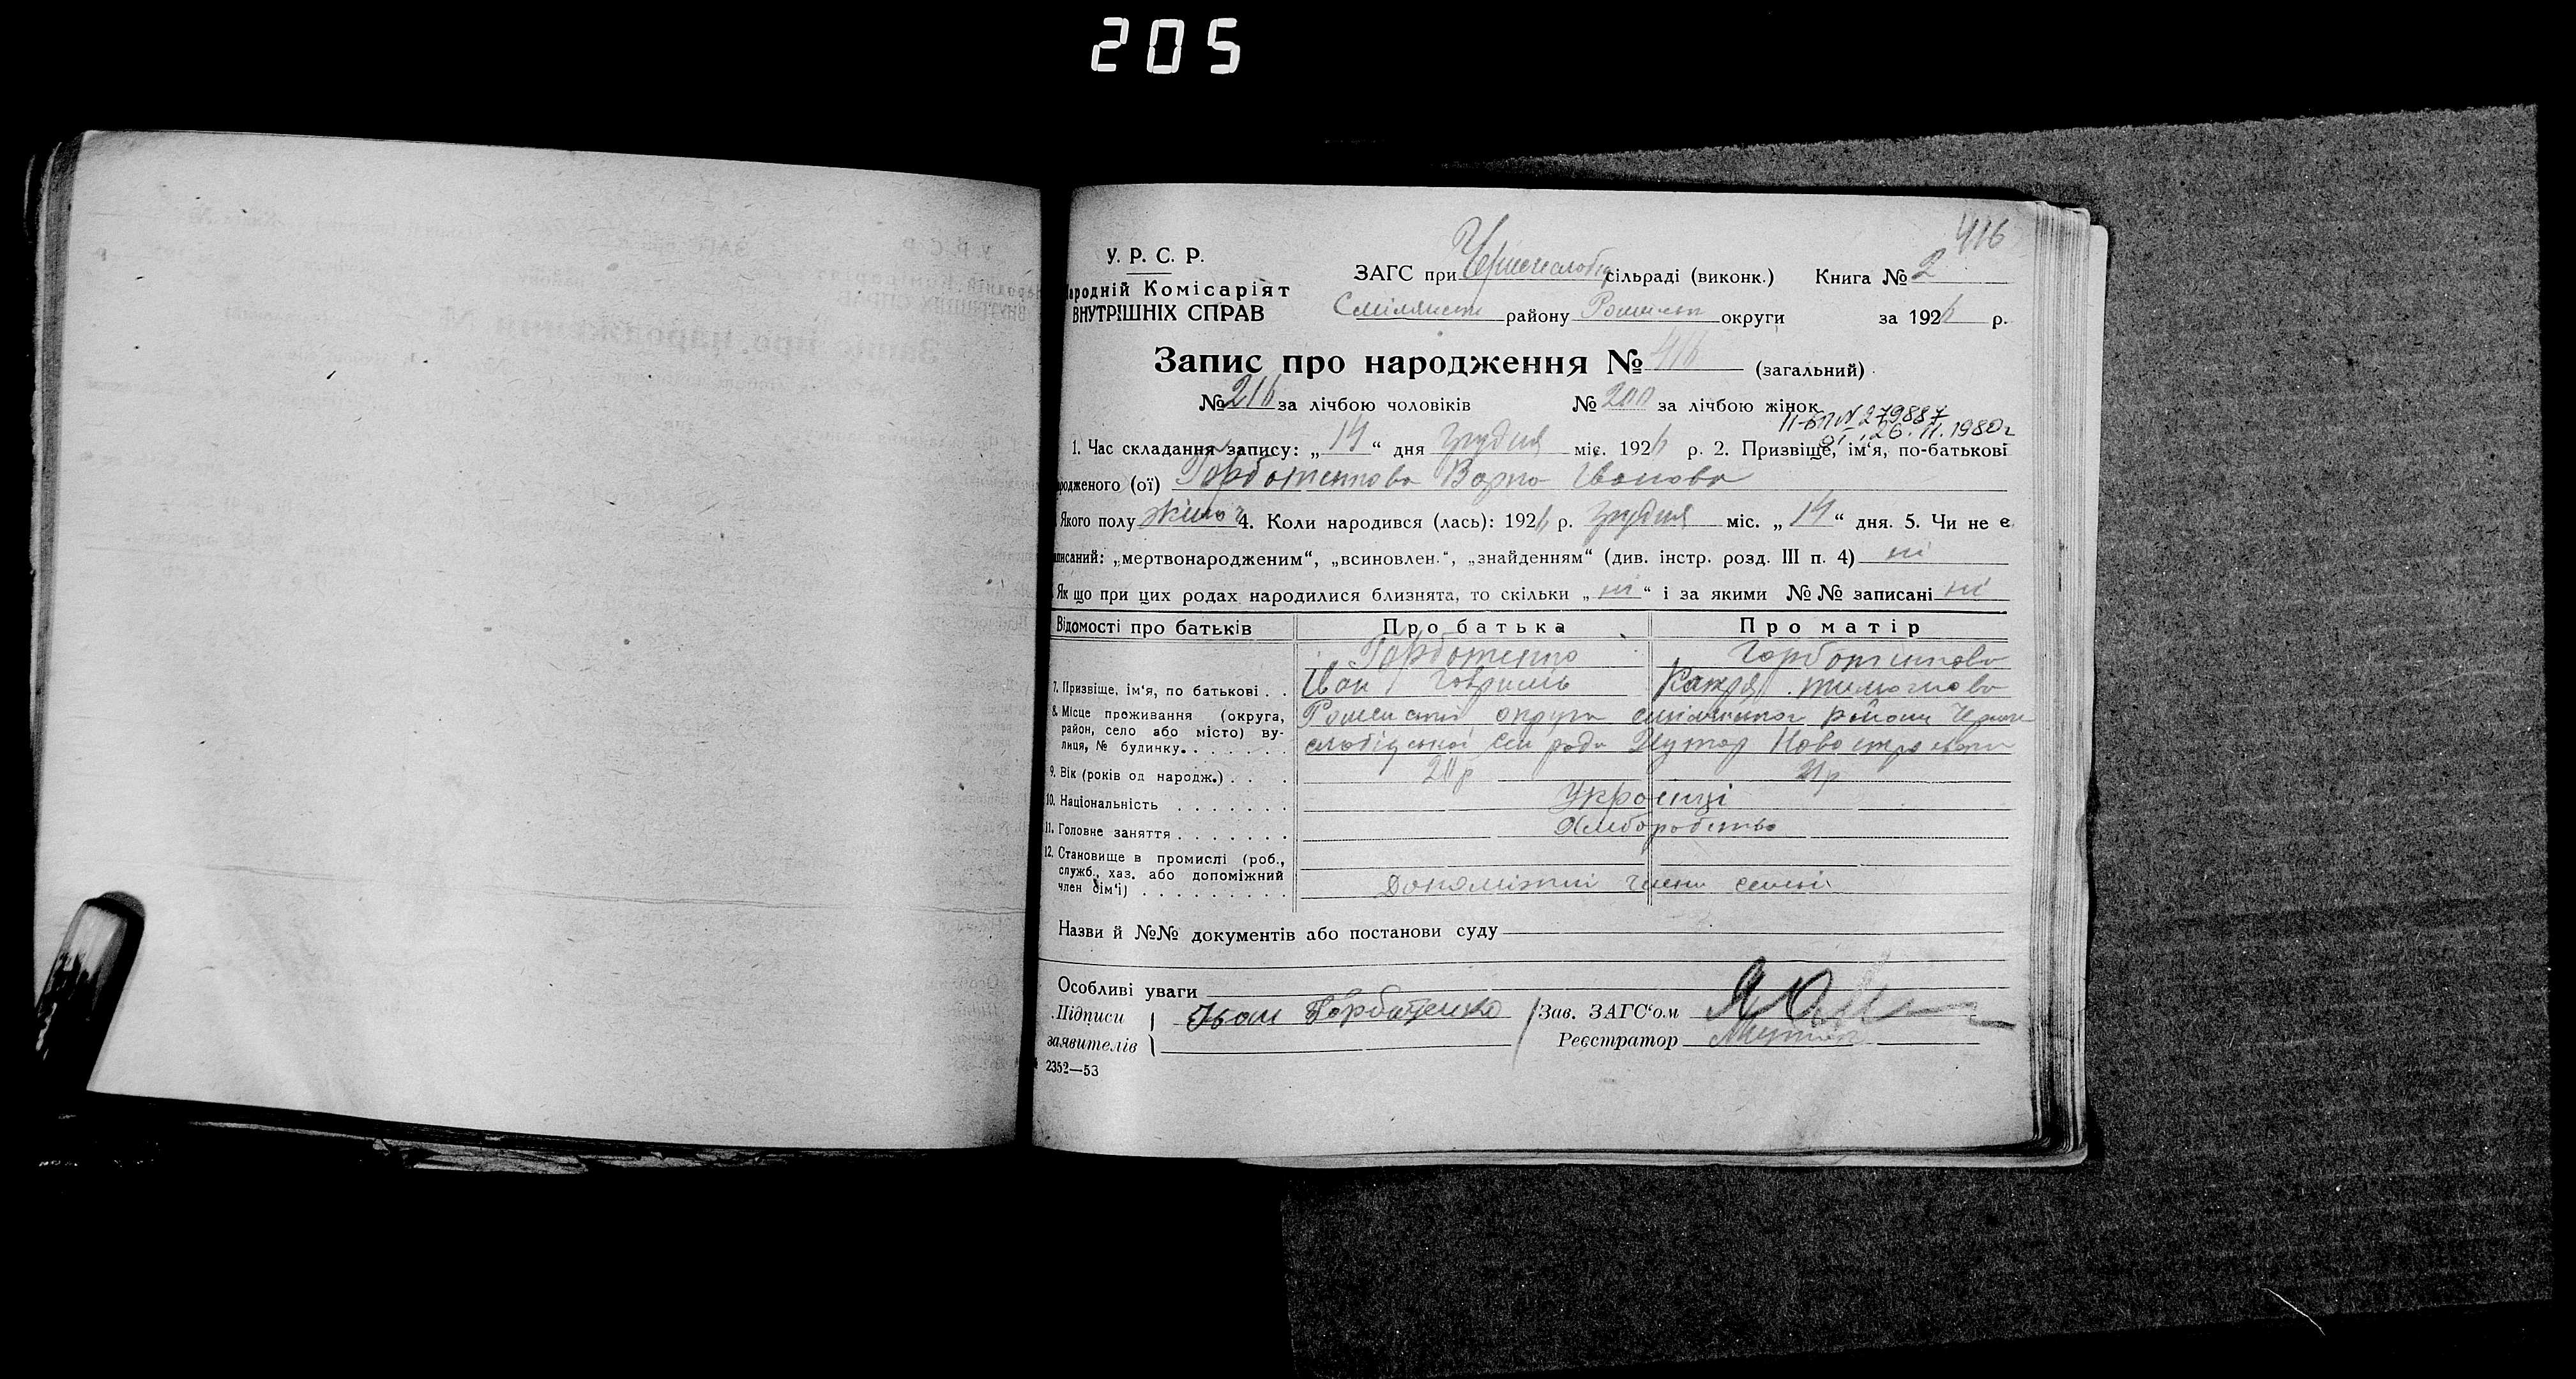 205
416
У. Р. С. Р.
Народній Комісаріят
ВНУТРІШНІХ СПРАВ
ЗАГС при сільраді (виконк.) Книга № 2
району округи за 1926 р.
Запис про народження № 416 (загальний)
№ 216 за лічбою чоловіків № 200 за лічбою жінок
II-БП № 279887
26.11.1980г
1. Час складання запису: „14“ дня Грудня міс. 1926 р. 2. Призвіще, ім'я, по-батькові
родженого (ої) Горботенкова Варка Іванова
Якого полу жіноч 4. Коли народився (лась): 1926 р. Грудня міс. „14“ дня. 5. Чи не є
писаний: „мертвонародженим“, „всиновлен.“, „знайденням“ (див. інстр. розд. III п. 4) ні
Як що при цих родах народилися близнята, то скільки „ні“ і за якими №№ записані ні
Відомості про батьків Про батька Про матір
Горботенко Горботенкова
7. Призвіще, ім'я, по батькові . . Іван Катря
8. Місце проживання (округа, район, село або місто) вулиця, № будинку. Роменської округи району
Хутор
9. Вік (років од народж.) . . . 20р 21р
10. Національність . . . . . . . Українці
11. Головне заняття . . . . . . . Хліборобство
12. Становище в промислі (роб.,
служб., хаз. або допоміжний
член сім'ї) . . . . . . . . . Допоміжні члени семьї
Назви й №№ документів або постанови суду
Особливі уваги
Підписи Іван Горбатенко Зав. ЗАГС'ом
заявителів Реєстратор
2352—53